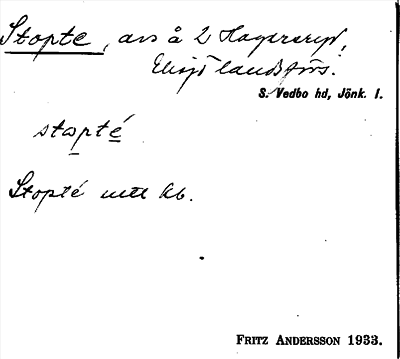 Stopte, avs å 2 Hagarsryd,
Eksjö landsförs.
S. Vedbo hd, Jönk. l.
stopté
Stopté utt kb.
FRITZ ANDERSSON 1933.